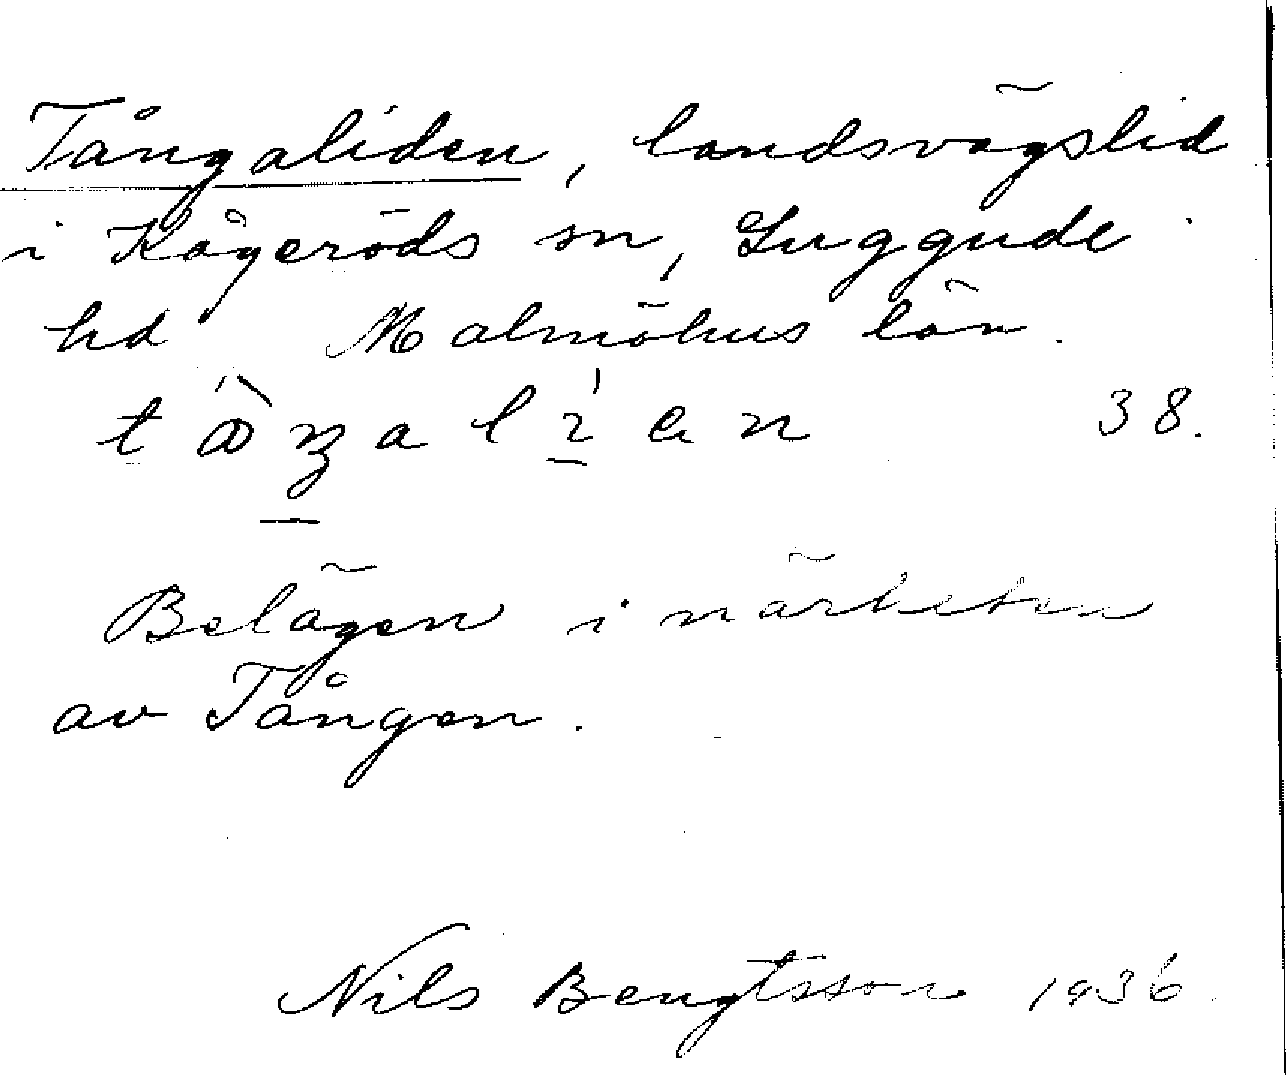 Tångaliden, landsvägslid
i Kågeröds sn, Luggude
hd Malmöhus län.
38.
Belägen i närheten
av Tången.
Nils Bengtsson 1936